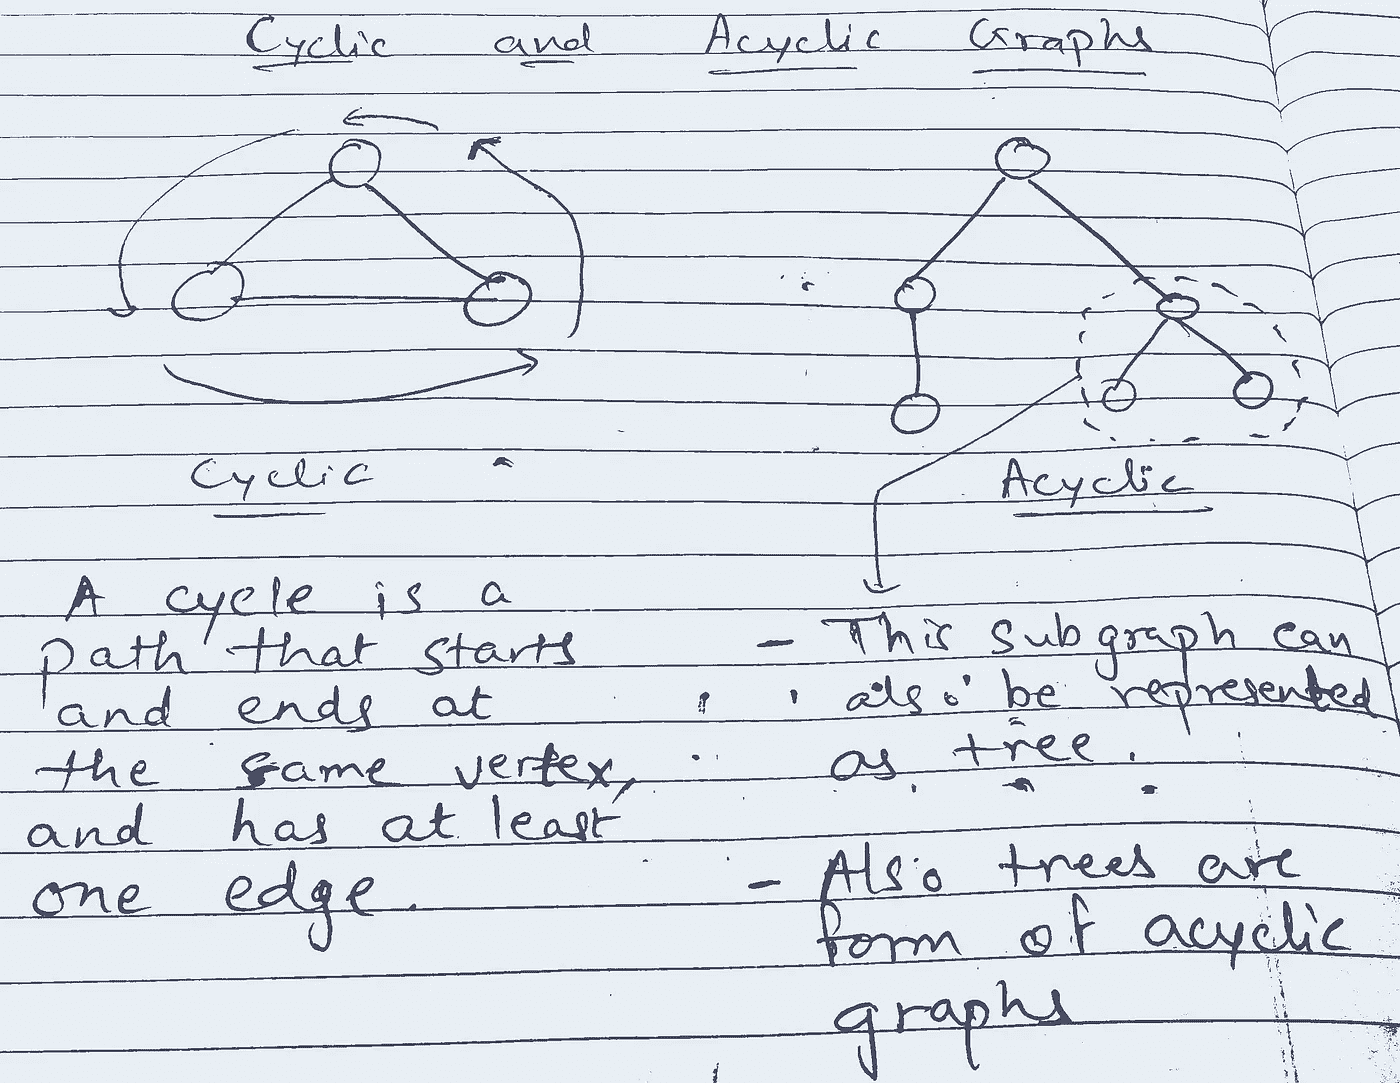 Cyclic and Acyclic Graphs
Cyclic
Acyclic
A cycle is a
path that starts
and ends at
the same vertex,
and has at least
one edge.
- This subgraph can
also be represented
as tree.
- Also trees are
form of acyclic
graphs